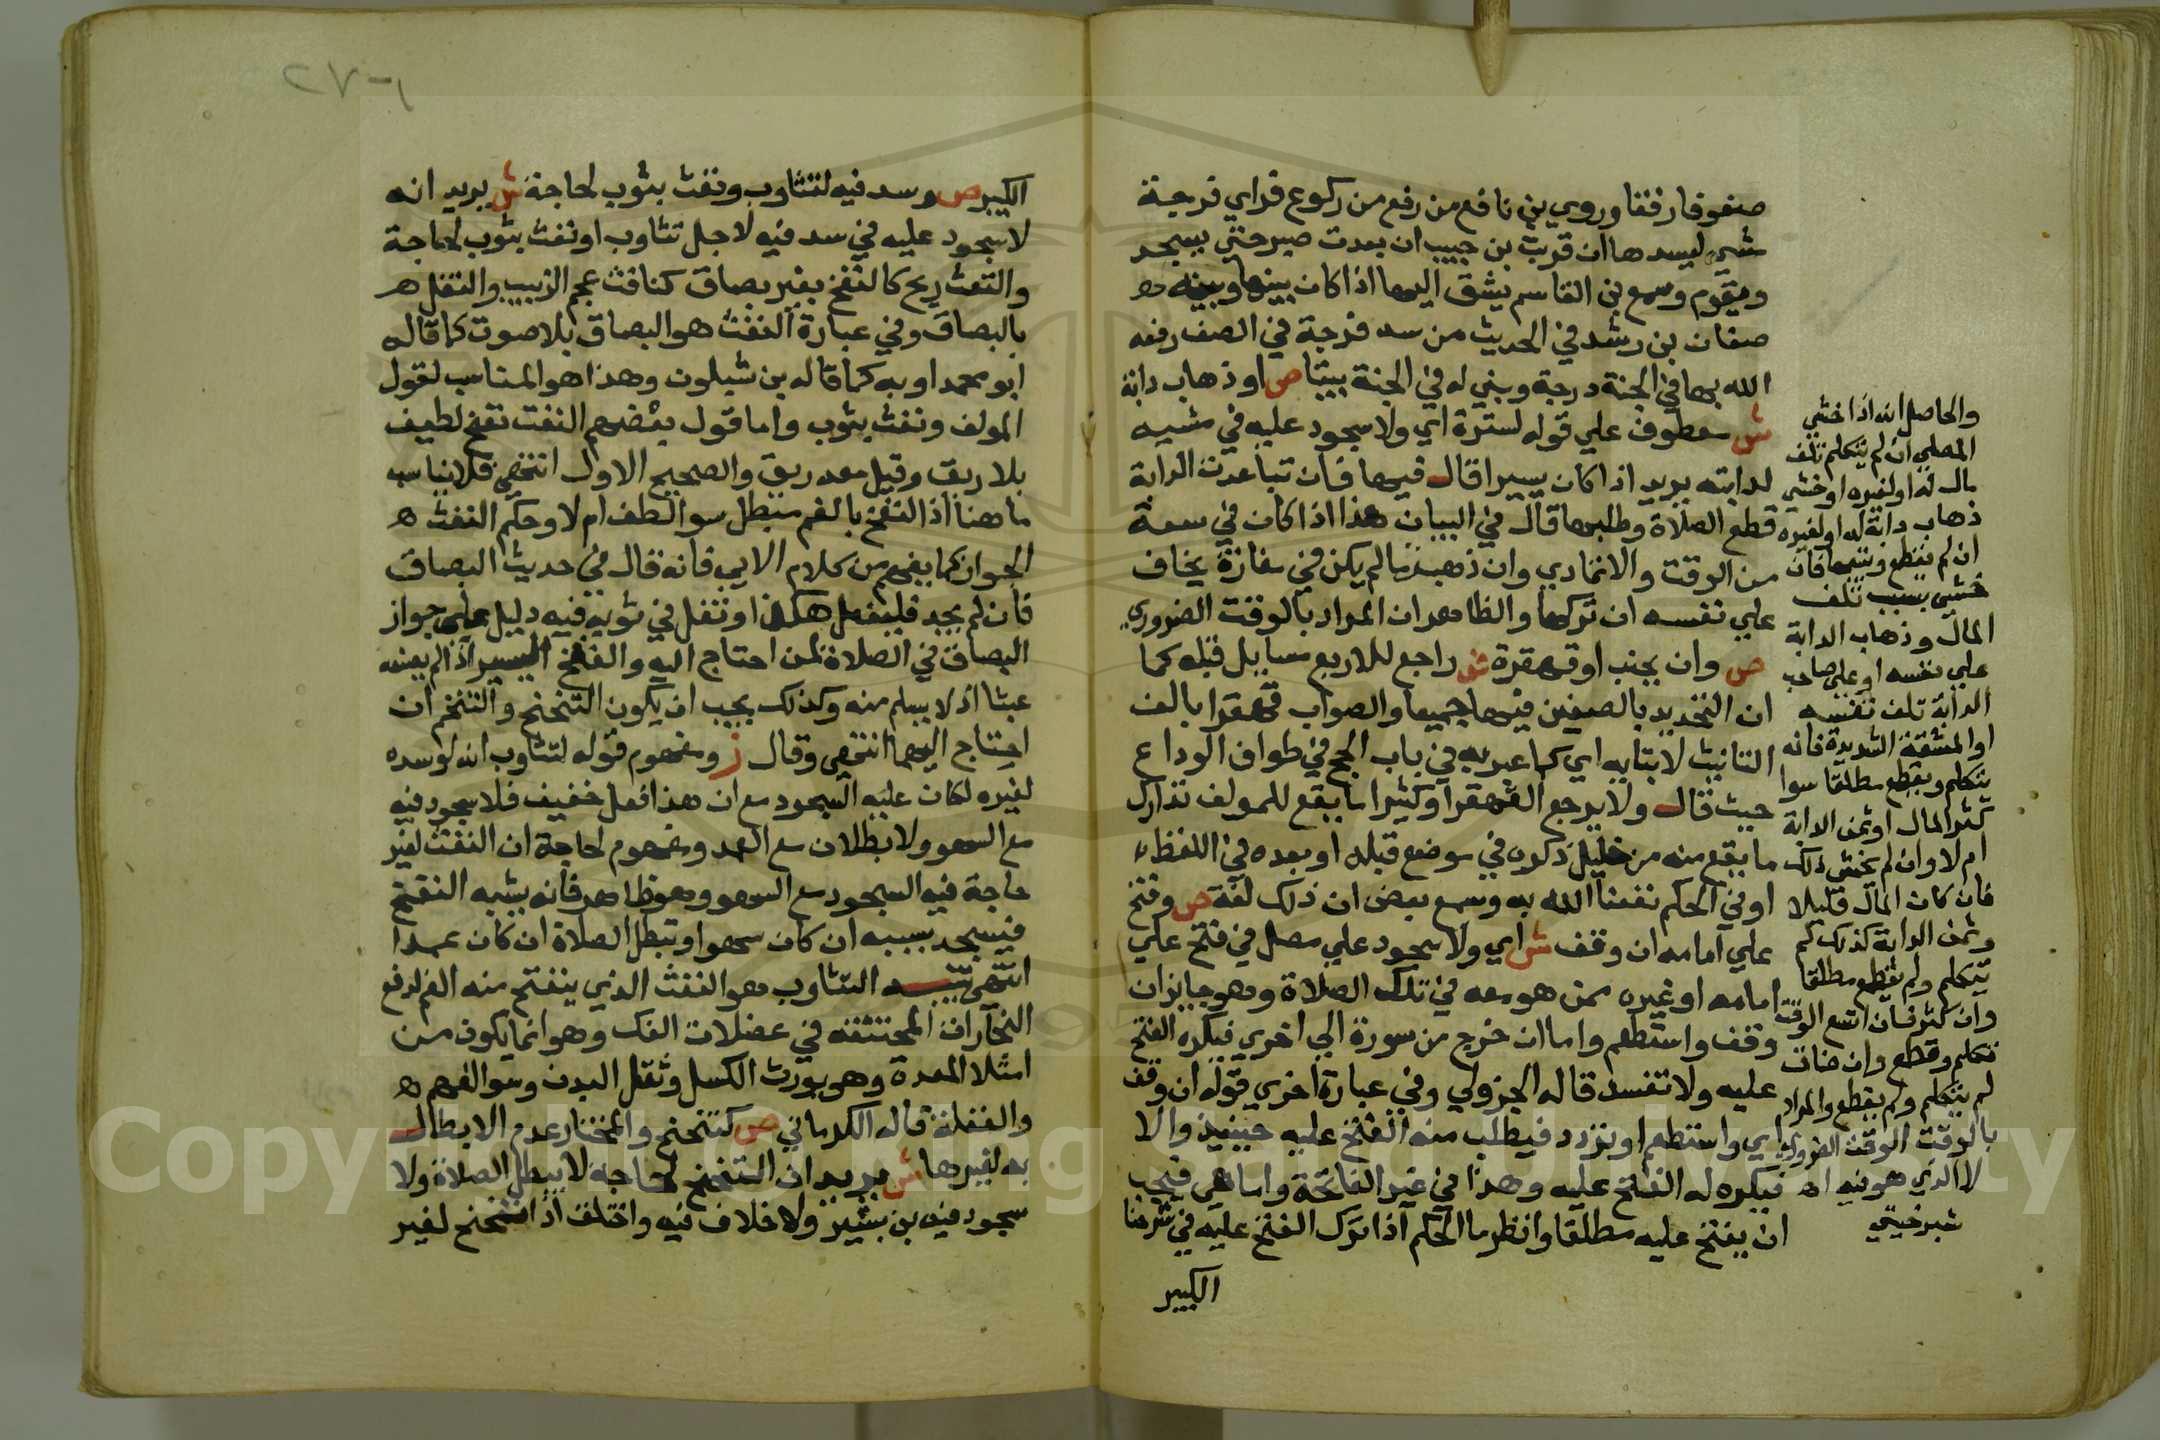 صفوفا رفقا وروي بن نافع من رفع من ركوع فراي فرجة
مشي ليسدها ان قربت بن حبيب ان بعدت صبر حتي يسجد
ويقوم وسمع بن القاسم يشق اليها اذا كان بينها وبينه
صفان بن رشد في الحديث من سد فرجة في الصف رفعه
الله بها في الجنة درجة وبني له في الجنة بيتا ص او ذهاب دابة
ش معطوف علي قوله لسترة اي ولا سجود عليه في مشيه
لدابته يريد اذا كان يسيرا قال فيها فان تباعدت الدابة
قطع الصلاة وطلبها قال في البيان هذا اذا كان في سعة
من الوقت والا تمادي وان ذهبت ما لم يكن في مفازة يخاف
علي نفسه ان تركها والظاهر ان المراد بالوقت الضروري
ص وان بجنب او قهقرة ش راجع للاربع مسايل قبله كما
ان التحديد بالصفين فيها جميعا والصواب قهقرا بالف
التانيث لا بتايه اي كما عبر به في باب الحج في طواف الوداع
حيث قال ولا يرجع القهقرا وكثيرا ما يقع للمولف تدارك
ما يقع منه من خليل ذكره في موضع قبله او بعده في اللفظ
او في الحكم نفعنا الله به وسمع بعض ان ذلك لغة ص وفتح
علي امامه ان وقف ش اي ولا سجود علي مصل في فتح علي
امامه او غيره ممن هو معه في تلك الصلاة وهو جايز ان
وقف واستطعم واما ان خرج من سورة الي اخري فيكره الفتح
عليه ولا تفسد قاله الجزولي وفي عبارة اخري قوله ان وقف
اي واستطعم او تردد فيطلب منه الفتح عليه حينيذ والا
فيكره له الفتح عليه وهذا في غير الفاتحة واما هي فيجب
ان يفتح عليه مطلقا وانظر ما الحكم اذا ترك الفتح عليه في شرحنا
الكبير
والحاصل انه اذا خشي
المصلي ان لم يتكلم تلف
مال له او لغيره او خشي
ذهاب دابة له او لغيره
ان لم يقطع ويتبعها فان
خشي بسبب تلف
المال وذهاب الدابة
علي نفسه او علي صاحب
الدابة تلف نفسه
او المشقة الشديدة فانه
يتكلم ويقطع مطلقا سوا
كثر المال او ثمن الدابة
ام لا وان لم يخش ذلك
فان كان المال قليلا
وثمن الدابة كذلك لم
يتكلم ولم يقطع مطلقا
وان كثر فان اتسع الوقت
تكلم وقطع وان ضاق
لم يتكلم ولم يقطع والمراد
بالوقت الوقت الضروري
لا الذي هو فيه اه
شبرخيتي
الكبير ص وسد فيه لتثاوب ونفث بثوب لحاجة ش يريد انه
لا سجود عليه في سد فيه لاجل تثاوب او نفث بثوب لحاجة
والنفث ريح كالنفخ بغير بصاق كنافث عجم الزبيب والتفل
بالبصاق وفي عبارة النفث هو البصاق بلا صوت كما قاله
ابو محمد او به كما قاله بن شبلون وهذا هو المناسب لقول
المولف ونفث بثوب واما قول بعضهم النفث نفخ لطيف
بلا ريق وقيل معه ريق والصحيح الاول انتهي فلا يناسب
ما هنا اذ النفخ بالفم مبطل سوا لطف ام لا وحكم النفث
الجواز كما يفهم من كلام الابي فانه قال في حديث البصاق
فان لم يجد فليفعل هكذا وتفل في ثوبه فيه دليل علي جواز
البصاق في الصلاة لمن احتاج اليه والنفخ اليسير اذا لم يعنه
عبثا اذ لا يسلم منه وكذلك يجب ان يكون التنحنح والتنخم ان
احتاج اليهما انتهي وقال ز ومفهوم قوله لتثاوب انه لو سده
لغيره لكان عليه السجود مع ان هذا فعل خفيف فلا سجود فيه
مع السهو ولا بطلان مع العمد ومفهوم لحاجة ان النفث لغير
حاجة فيه السجود مع السهو وهو ظاهر فانه يشبه النفخ
فيسجد بسببه ان كان سهوا وتبطل الصلاة ان كان عمدا
انتهي تنبيه التثاوب هو النفث الذي ينفتح منه الفم لدفع
البخارات المحتقنة في عضلات الفك وهو انما يكون من
امتلا المعدة وهو يورث الكسل وثقل البدن وسو الفهم
والغفلة قاله الكرماني ص كتنحنح والمختار عدم الابطال
به لغيرها ش يريد ان التنحنح لحاجة لا يبطل الصلاة ولا
سجود فيه بن بشير ولا خلاف فيه واختلف اذا تنحنح لغير
Copyright © King Saud University